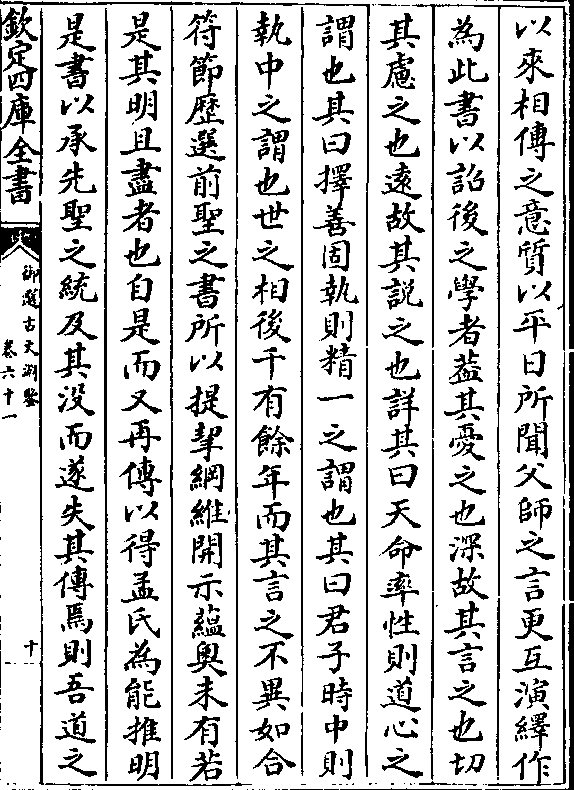 以來相傳之意質以平日所聞父師之言更互演繹作
為此書以詔後之學者蓋其憂之也深故其言之也切
其慮之也遠故其說之也詳其曰天命率性則道心之
謂也其曰擇善固執則精一之謂也其曰君子時中則
執中之謂也世之相後千有餘年而其言之不異如合
符節歷選前聖之書所以提挈綱維開示蘊奧未有若
是其明且盡者也自是而又再傳以得孟氏為能推明
是書以承先聖之統及其沒而遂失其傳焉則吾道之
欽定四庫全書
御選古文淵鑒
卷六十一
十